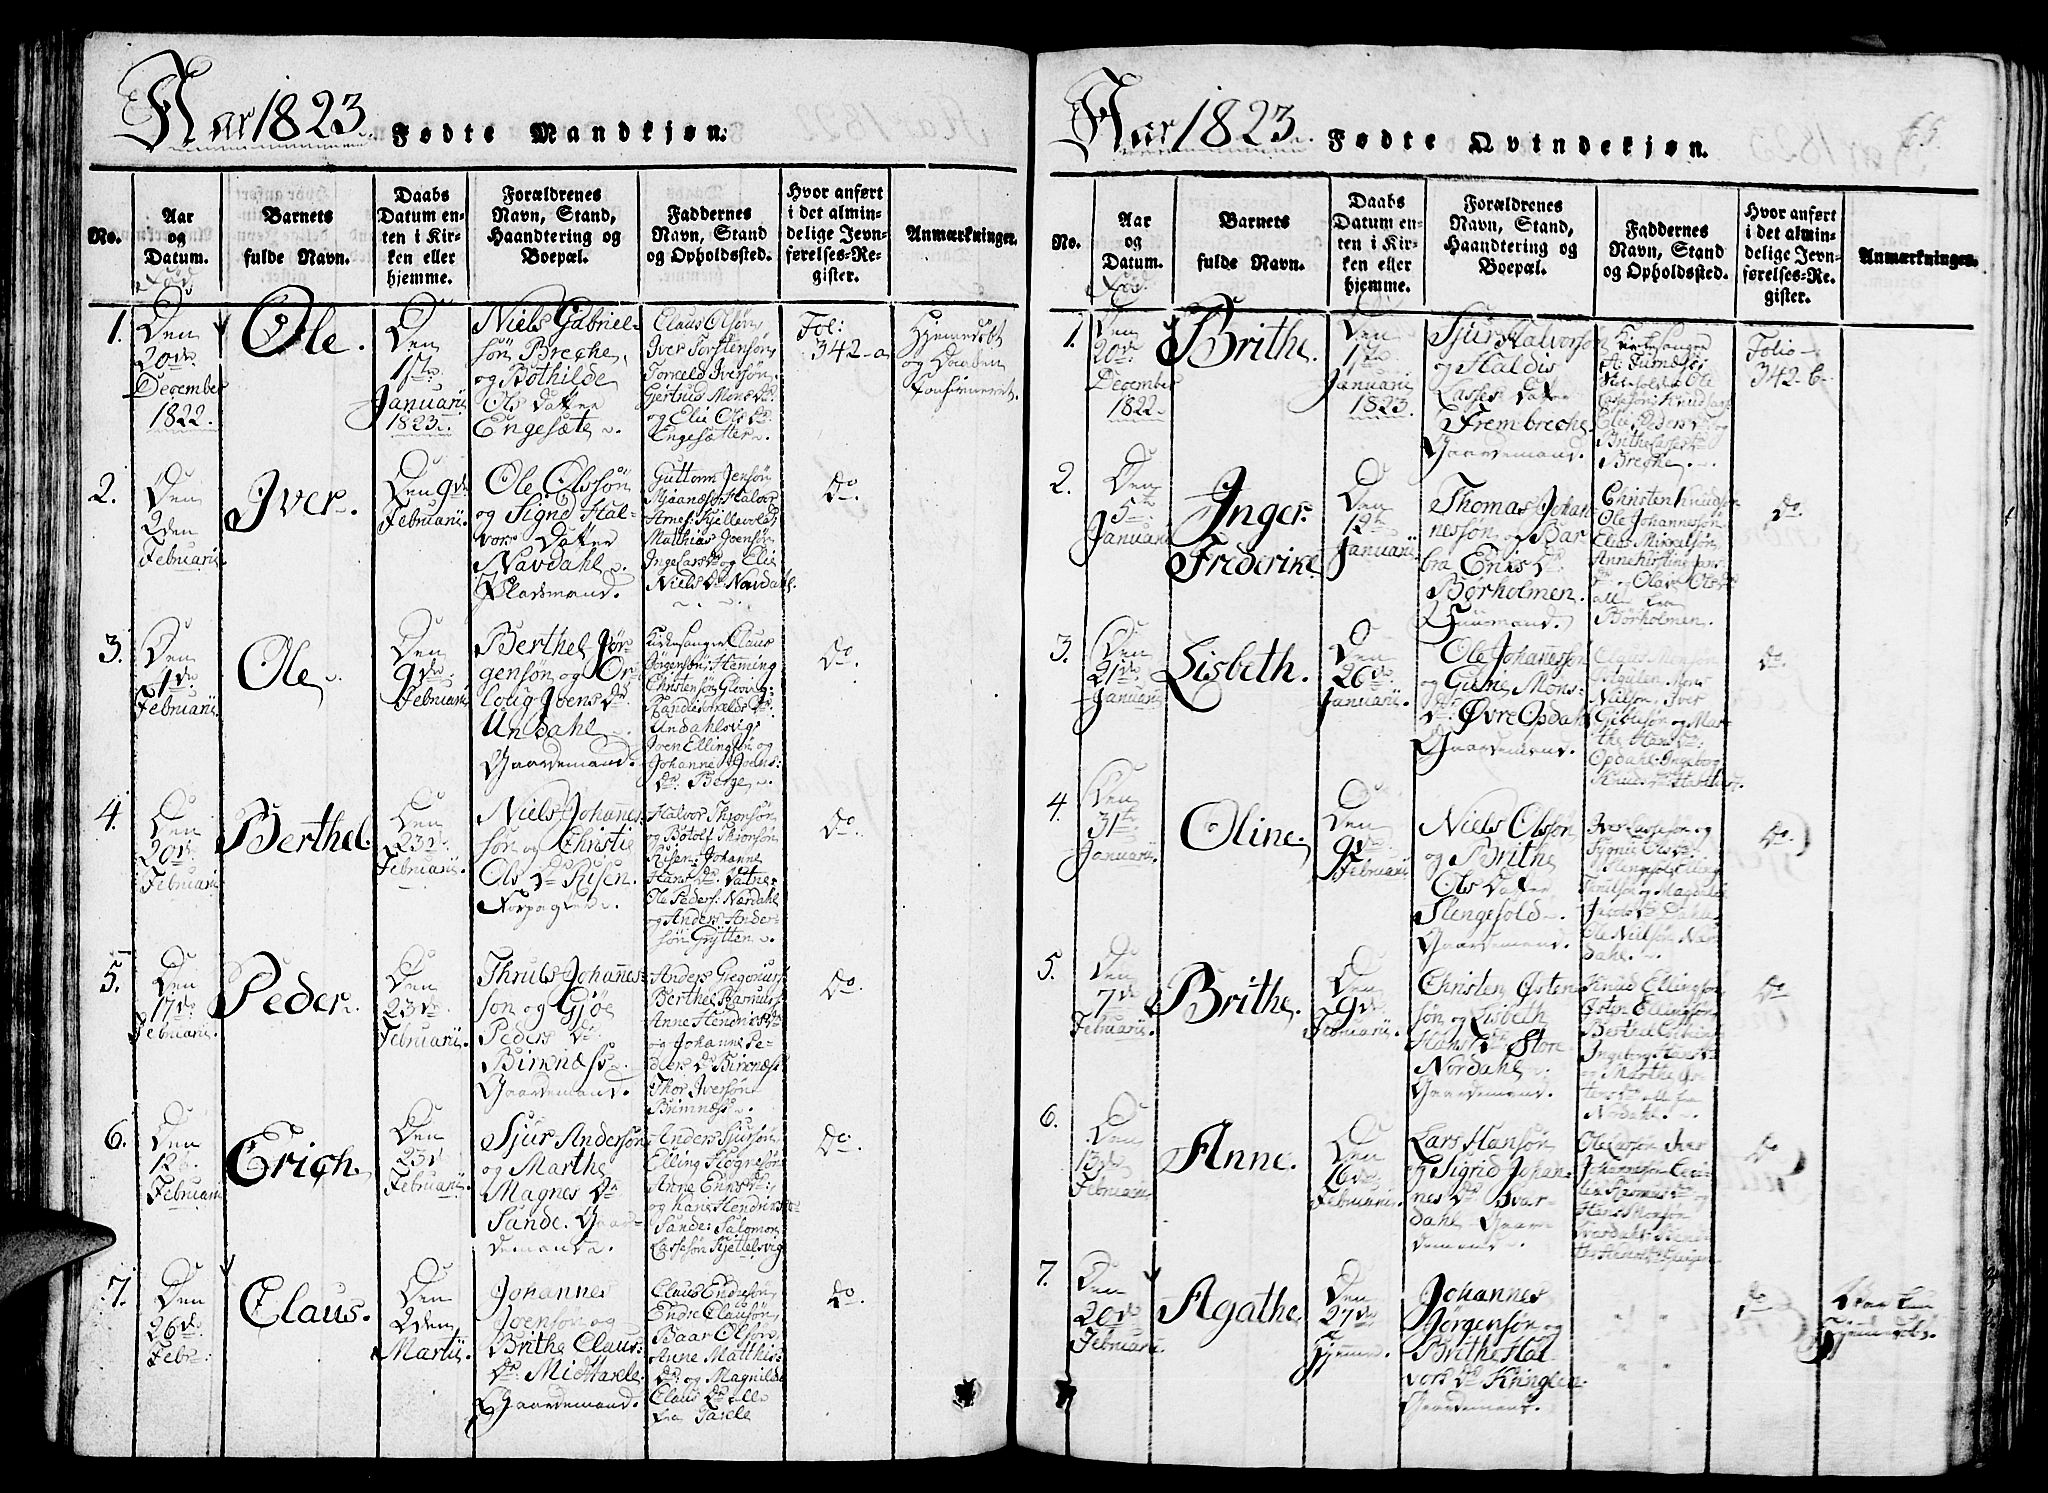 Aar 1823. Fødte Mandkjøn.
No.
Aar
og
Datum.
Barnets
fulde Navn.
Daabs
Datum en-
ten i Kir-
ken eller
hjemme.
Forældrenes
Navn, Stand,
Haandtering og
Boepæl.
Faddernes
Navn, Stand
og Opholdssted.
Hvor anført
i det almin-
delige Jevn-
førelses-Re-
gister.
Anmærkninger.
1.
Den
20de
December
1822.
Ole.
Den
1ste
Januarii
1823.
Niels Gabriel-
søn Breche,
og Bothilde
Ols Datter
Engesæte.
Claus Olsøn,
Iver Torstensøn,
Torkeld Iversøn,
Gjertrud Mons Dr.
og Elie Ols Dr.
Engesætter.
Fol:
342-a
Hjemmedøbt
og Daaben
confirmeret.
2.
Den
2den
Februarii.
Iver.
Den 9de
Februarii.
Ole Olssøn
og Signe Hal-
vors Datter
Navdahl.
Pladsmand.
Guttorm Jensøn
Matthias Joensøn
Inge Lars Dr og Elie
Niels Dr. Navdahl.
Do.
3.
Den
1de
Februarii.
Ole.
Den
9de
Februarii.
Berthel Jør-
gensøn og Or-
loug Joens Dr.
Undahl.
Gaardemand.
Kirkesanger Claus
Jørgensøn, Heming
Christensøn
Undahlsvig:
Joen Ellingsøn og
Johanne Joens
Dr. Berge.
Do.
4.
Den
20de
Februarii
Berthel.
Den
23de
Februarii.
Niels Johannes-
søn og Christie
Ols Dr Risen.
Halvor Thronsøn,
og Botolf Thronsøn
Risen: Johanne
Hans Dr. Vatne.
Ole Peders: Navdahl
og Anders Anders-
søn Grytten.
Do.
5.
Den
17de
Februarii.
Peder.
Den
23de
Februarii.
Thruls Johannes-
søn og Gjøe
Peders Dr.
Birknæss.
Gaardemand.
Anders Gregoriuss
Berthel Rasmuss
Anne Hendrics Dr
og Johanne Pe-
ders Dr Birknæss
Thor Iversøn
Brimnæss.
Do.
6.
Den
12
Februarii
Erich.
Den
23de
Februarii.
Sjur Andersøn
og Marthe
Magnes Dr.
Sande. Gaar-
demand.
Anders Sjursøn,
Elling Hognesøn
Anne Erics Dr.
og hans Hendrics
Sande: Salomon
Lassesøn Kjettelsvig
Do.
7.
Den
26de
Febr:
Claus.
Den
2den
Martii.
Johannes
Joensøn og
Brithe Claus
Dr. Midttarele
Gaardemand.
Claus Endresøn
Endre Clausøn,
Baar Olsøn
Anne Matthis
Dr. og Magnilde
Claus Dr alle
fra Tarele
Do.
Aar 1823. Fødte Qvindekjøn.
65.
No.
Aar
og
Datum.
Barnets
fulde Navn.
Daabs
Datum en-
ten i Kir-
ken eller
hjemme.
Forældrenes
Navn, Stand,
Haandtering og
Boepæl.
Faddernes
Navn, Stand
og Opholdssted.
Hvor anført
i det almin-
delige Jevn-
førelses-Re-
gister.
Anmærkninger.
1.
Den
20de
December
1822.
Brithe.
Den
1ste
Januarii
1823.
Sjur Halvorsøn
og Haldis
Lasses Datter
Frembreche
Gaardemand.
Kirkesanger
Elie Peders Dr og
Brithe Lasses Dr
Breche.
Folio
342-b.
2.
Den
5te
Januarii
Inger
Frederike.
Den
12te
Januarii
Thomas Johan-
nessøn og Bar-
bra Erics Dr.
Børholmen.
Huusmand.
Christen Knudsøn
Ole Johannessøn
Elias Mikkelsøn,
Anne Kirstine
Dr. Olave Ols Dr
alle fra
Børholmen.
Do.
3.
Den
21de
Januarii
Lisbeth.
Den
26de
Januarii.
Ole Johannessøn
og Gurie Mons
Dr. Øvre Opdahl
Gaardemand.
Claus Monsøn
Mons
Nielsøn, Iver
og Mar-
the Hans Dr:
Opdahl. Ingeborg
Do.
4.
Den
31te
Januarii
Oline.
Den
9de
Februarii
Niels Olssøn
og Brithe
Ols Datter
Slengesold.
Gaardemand.
Iver Lassesøn og
Sygnie Ols Dr
Slengesol: Elling
og Magdele
Jacobs Dr Dahle
Ole Nielsøn Nav-
dahl.
Do.
5.
Den
7de
Februarii.
Brithe.
Den
9de
Februarii.
Christen Østen-
søn og Lisbeth
Hans Dr Store
Nordahl.
Gaardemand.
Knud Ellingsøn
Østen Ellingsøn
Berthel
Ingeborg Hans Dr
og Marthe Øs-
tens Dr alle fra
Nordahl.
Do
6.
Den
13de
Februarii
Anne.
Den
16de
Februarii.
Lars Hansøn
og Sigrid Johan-
nes Dr. Svar-
dahl Gaar-
demand.
Ole Larsøn, Iver
Johannesøn
Rasmus Dr og
Hans Monsøn
Svardahl:
Do
7.
Den
20de
Februarii.
Agathe.
Den
27de
Hjemme.
Johannes
Jørgensøn og
Brithe Hal-
vors Dr Kringlen.
Gaardemand.
Do
Hjemmedøbt.